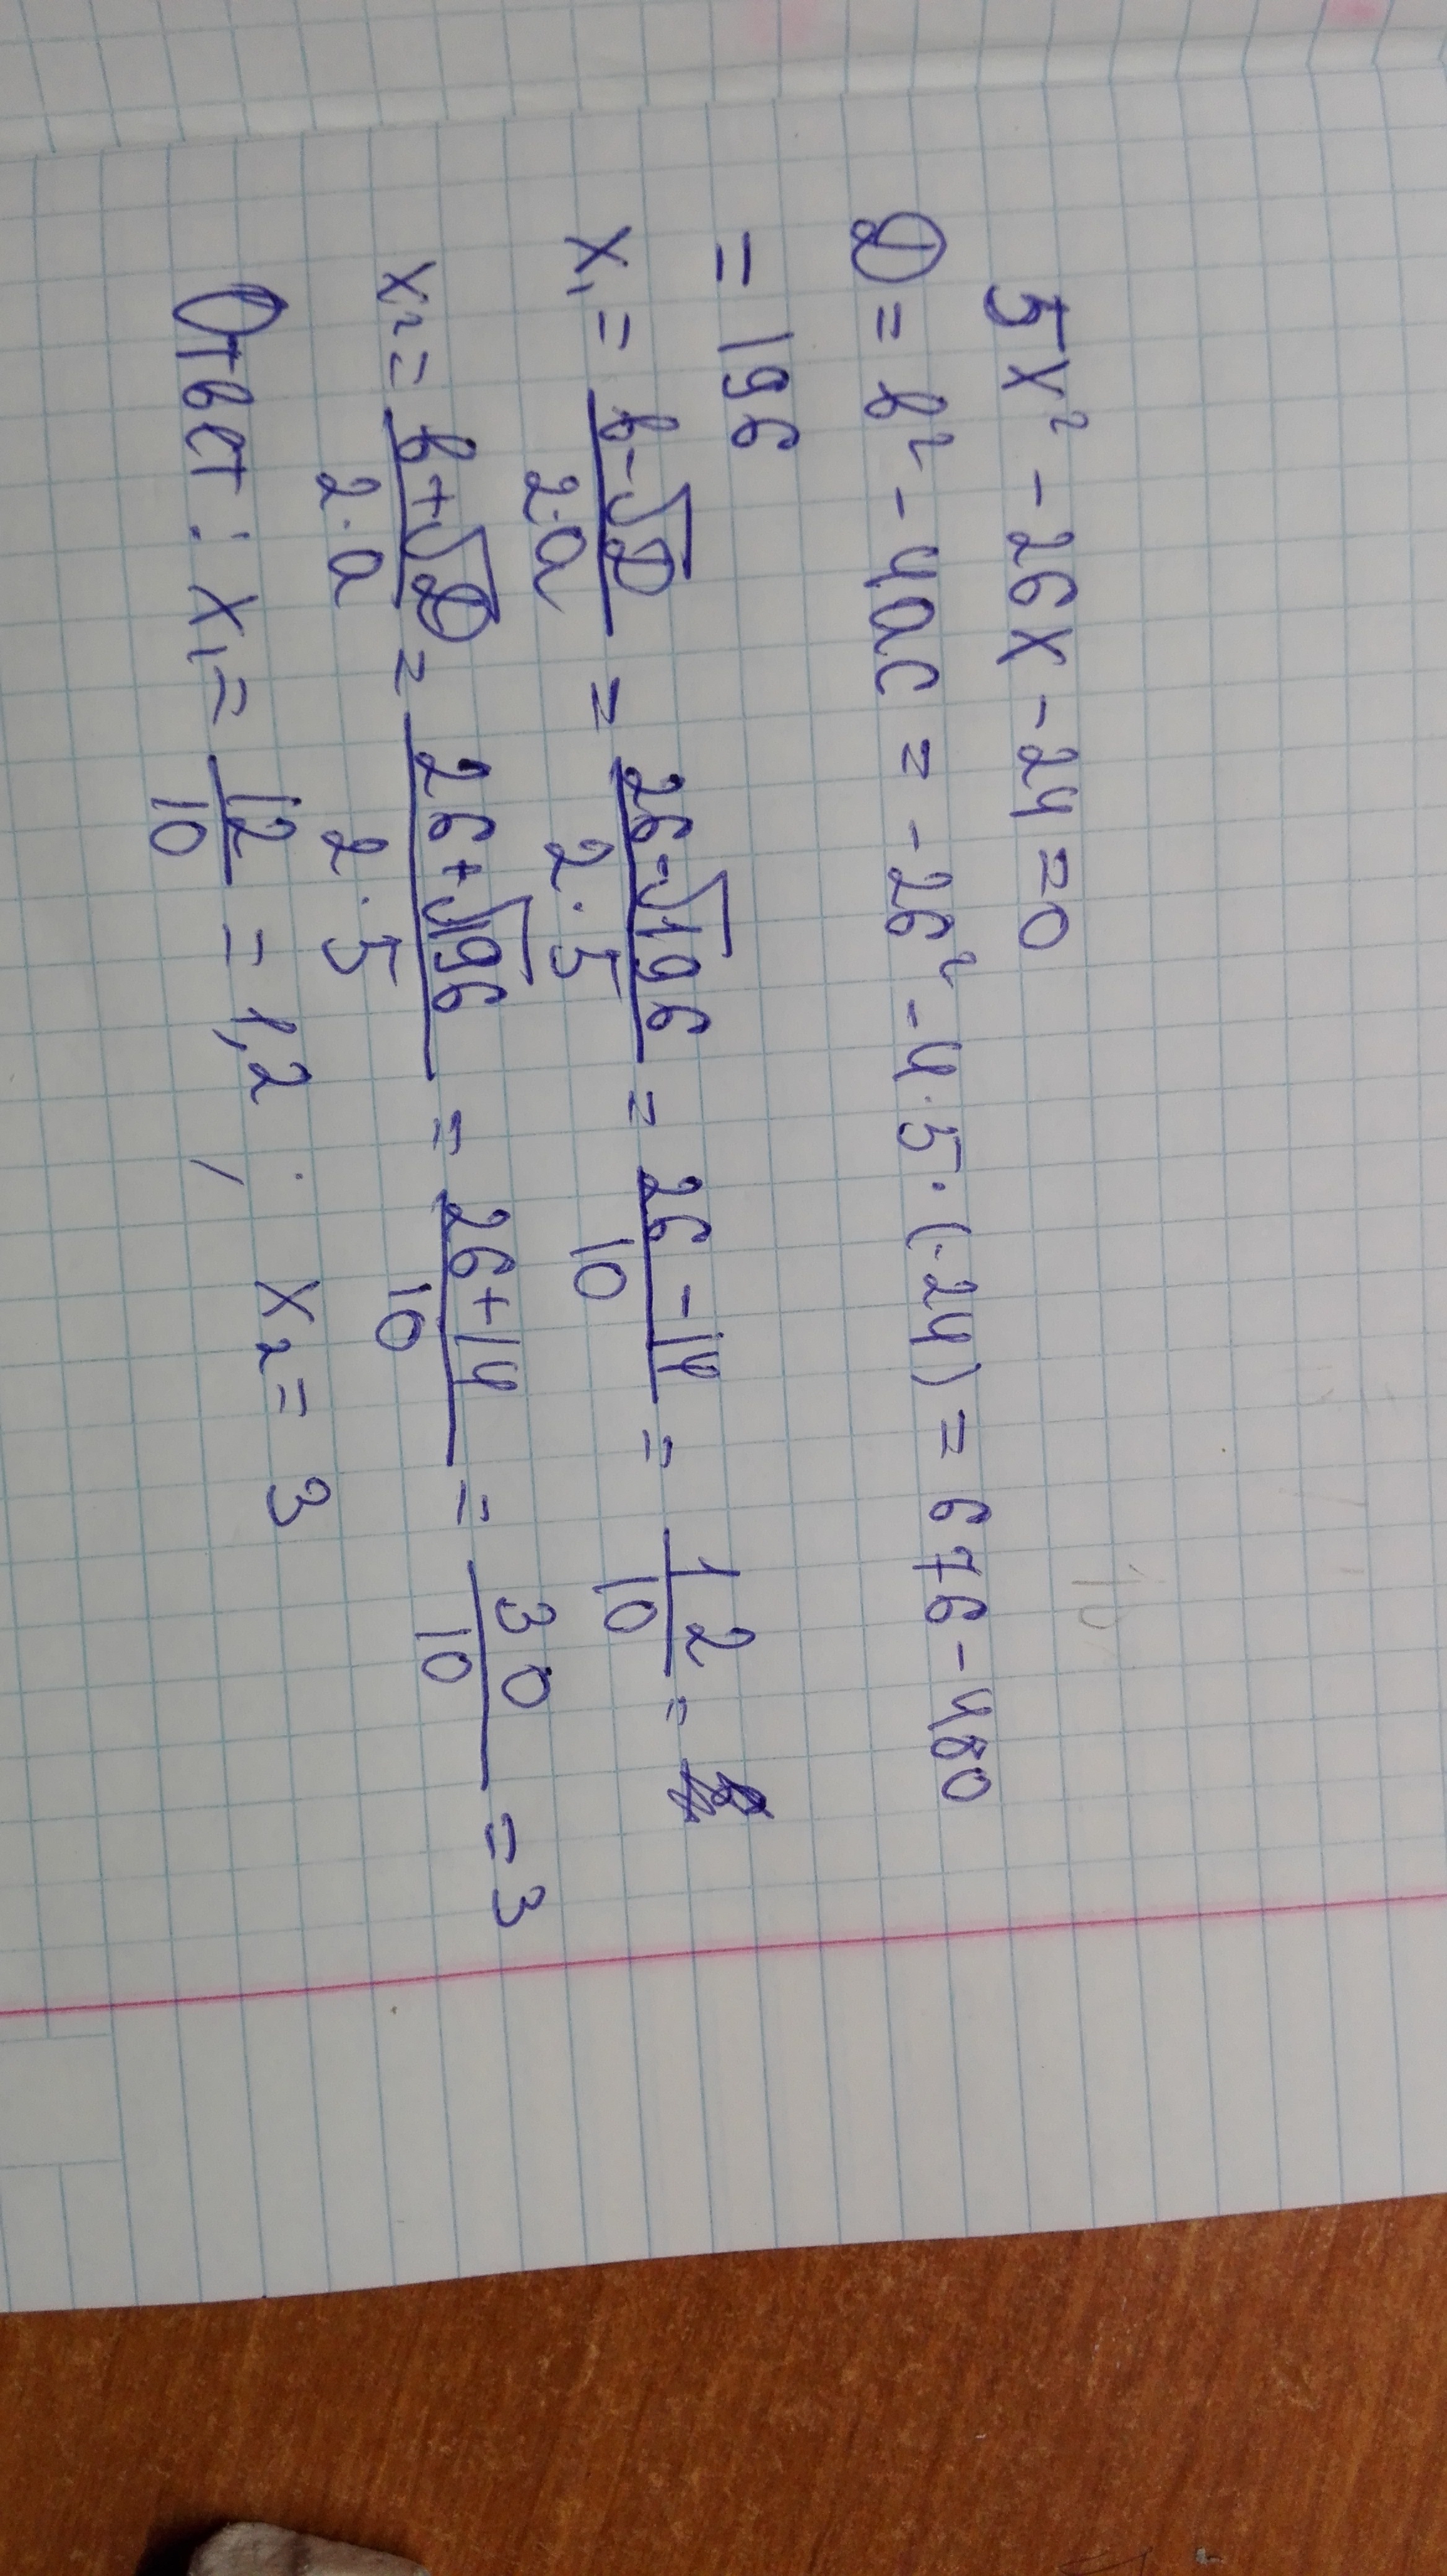 5x² - 26x - 24 = 0
D = b² - 4ac = -26² - 4·5·(-24) = 676 - 480
= 196
x₁ = (b-√D)/(2·a) = (26-√196)/(2·5) = (26-14)/10 = 12/10 =
x₂ = (b+√D)/(2·a) = (26+√196)/(2·5) = (26+14)/10 = 30/10 = 3
Ответ: x₁ = 12/10 = 1,2 ; x₂ = 3